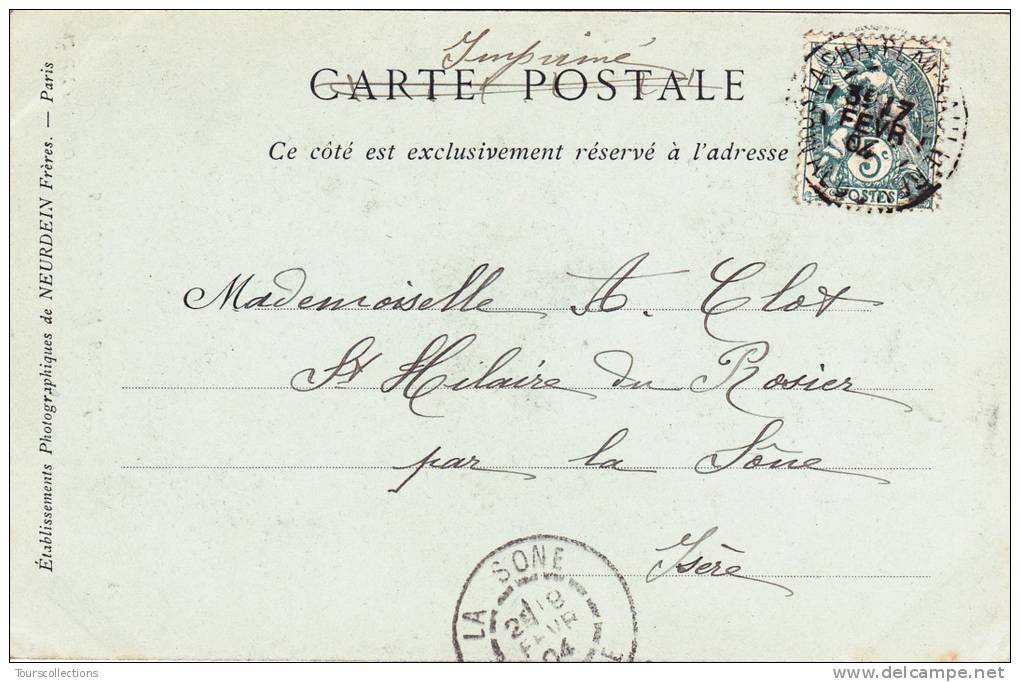 Imprimé
CARTE POSTALE
Ce côté est exclusivement réservé à l'adresse
17
FEVR
04
5c
POSTES
Établissements Photographiques de NEURDEIN Frères. — Paris
Mademoiselle A. Clot
St Hilaire du Rosier
par la Sône
Isère
LA SONE
FEVR
04
Tourscollections
www.delcampe.net